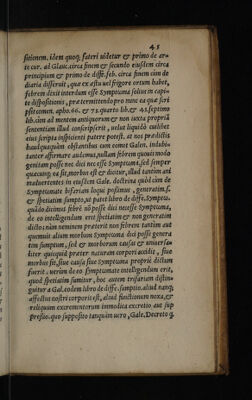 45
sitionem. idem quoq; fateri videtur & primo de ar-
te cur. ad Glauc. circa finem & secundo eiusdem circa
principium & primo de diffe. feb. circa finem cùm de
diaria disseruit, quæ ex æstu vel frigore ortum habet,
febrem dixit interdum esse Symptoma solius in capi-
te dispositionis, prætermittendo pro nunc ea quæ scri
psit comen. apho. 66. & 72 quarto lib. & 45. septimo
lib. cùm ad mentem antiquorum & non iuxta propriā
sententiam illud conscripserit, velut liquidò cuilibet
eius scripta inspicienti patere potest. at nos prædictis
haudquaquàm obstantibus cum comet Galen. indubi-
tanter affirmare audemus, nullam febrem quouis modo
genitam posse nec dici nec esse Symptoma, sed semper
quacunq; ea sit, morbus est & dicitur, illud tantùm ani
maduertentes in eiusdem Gale. doctrina quòd cùm de
Symptomate bifariam loqui possimus, generatim. s.
& spetiatim sumpto, vt patet libro de diffe. Sympto.
quādo dicimus febrē nō posse dici necesse Symptoma,
de eo intelligendum erit spetiatim & non generatim
dicto: nàm neminem præterit non febrem tantùm aut
quemuis alium morbum Symptoma dici posse genera
tim sumptum, sed & morborum causas & vniuersa-
liter quicquid præter naturam corpori accidit, siue
morbus sit, siue causa siue Symptoma propriè dictum
fuerit. verùm de eo symptomate intelligendum erit,
quod spetiatim sumitur, hoc autem trifariàm distin-
guitur à Gal. eodem libro de diffe. sumptio. aliud nanq;
affectus nostri corporis est, aliud functionum noxa, &
reliquum excrementorum immodica excretio aut sup
pressio. quo supposito tanquàm vero, Gale. Decreto q.